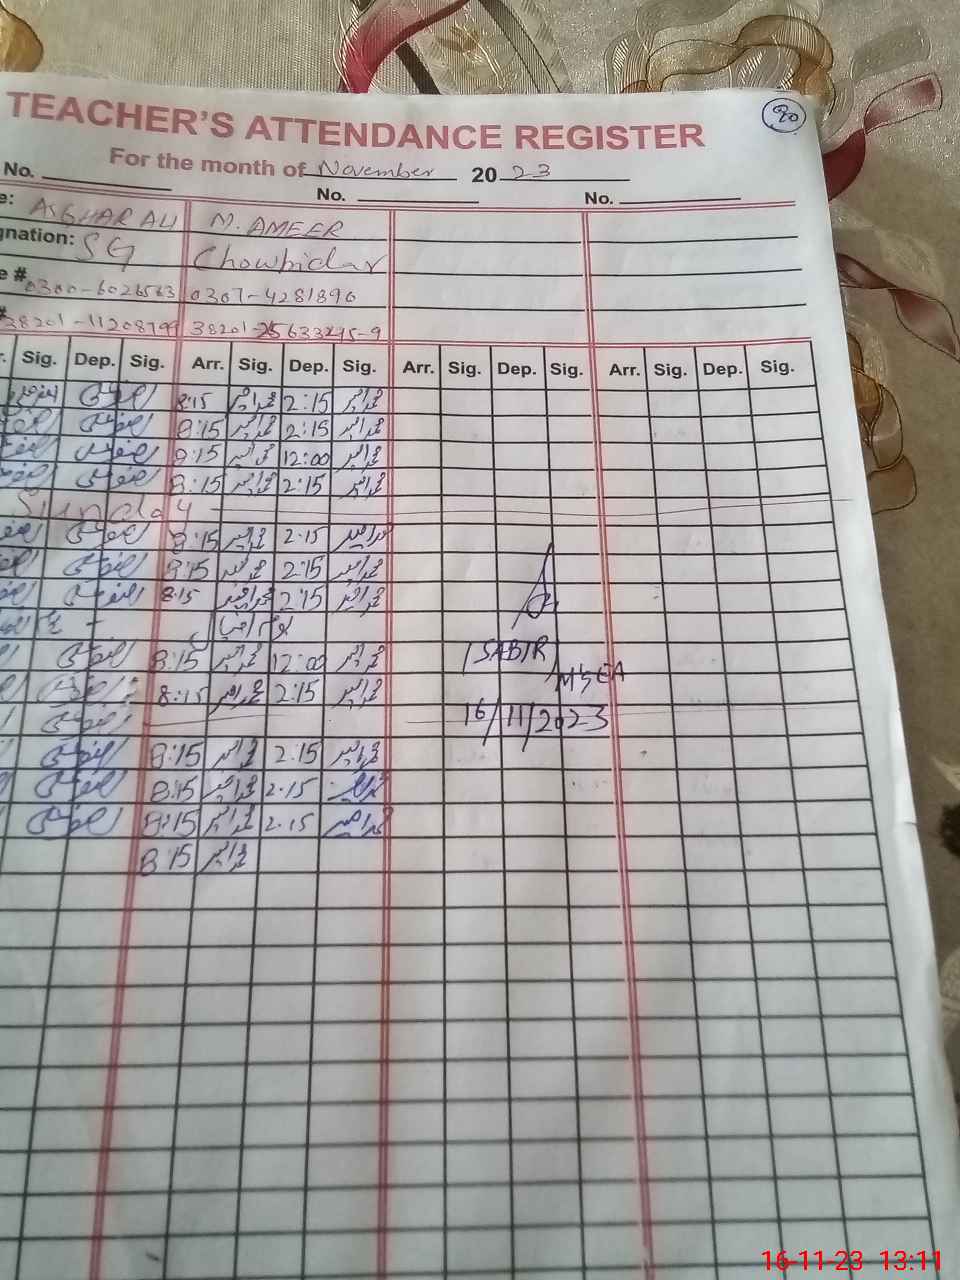 90
TEACHER'S ATTENDANCE REGISTER
For the month of November 20 23
No. No. No.
e: ASGHAR ALI M. AMEER
gnation: SG Chowbidar
e # 0300-6026563 0307-4281890
38201-11208799 38201-25633295-9
r. Sig. Dep. Sig. Arr. Sig. Dep. Sig. Arr. Sig. Dep. Sig. Arr. Sig. Dep. Sig.
8:15 محمد امیر 2:15 محمد امیر
8:15 محمد امیر 2:15 محمد امیر
8:15 محمد امیر 12:00 محمد امیر
8:15 محمد امیر 2:15 محمد امیر
Sunday
8:15 محمد امیر 2:15 محمد امیر
8:15 محمد امیر 2:15 محمد امیر
8:15 محمد امیر 2:15 محمد امیر
یوم اقبال
8:15 محمد امیر 12:00 محمد امیر
SABIR
8:15 محمد امیر 2:15 محمد امیر
MEA
16/11/2023
8:15 محمد امیر 2:15 محمد امیر
8:15 محمد امیر 2.15 محمد امیر
8:15 محمد امیر 2.15 محمد امیر
8:15 محمد امیر
16-11-23 13:11